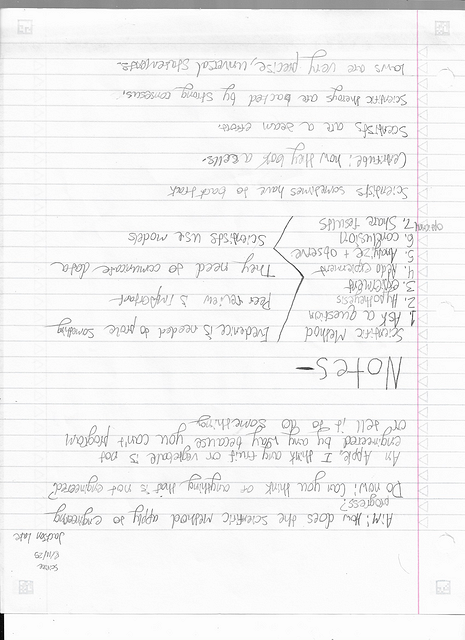 Jackson Late
AIM: How does the scientific method apply to engineering
progress?
Do now: Can you think of anything that is not engineered?
An Apple. I think any fruit or vegetable is not
engineered by any way because you can't program
or tell it to do something
Notes-
Scientific Method
1. Ask a question
2. Hypothesis
3. experiment
4. redo expierment
5. Analyze + observe
6. conclusion
7. Share results
Evidence is needed to prove something
Peer review is important
They need to comunicate data
Scientists use models
Scientists sometimes have to backtrack
Contribute: how they look a cells.
Scientists are a team effort.
Scientific theorys are backed by strong consensus.
laws are very precise, universal statements.